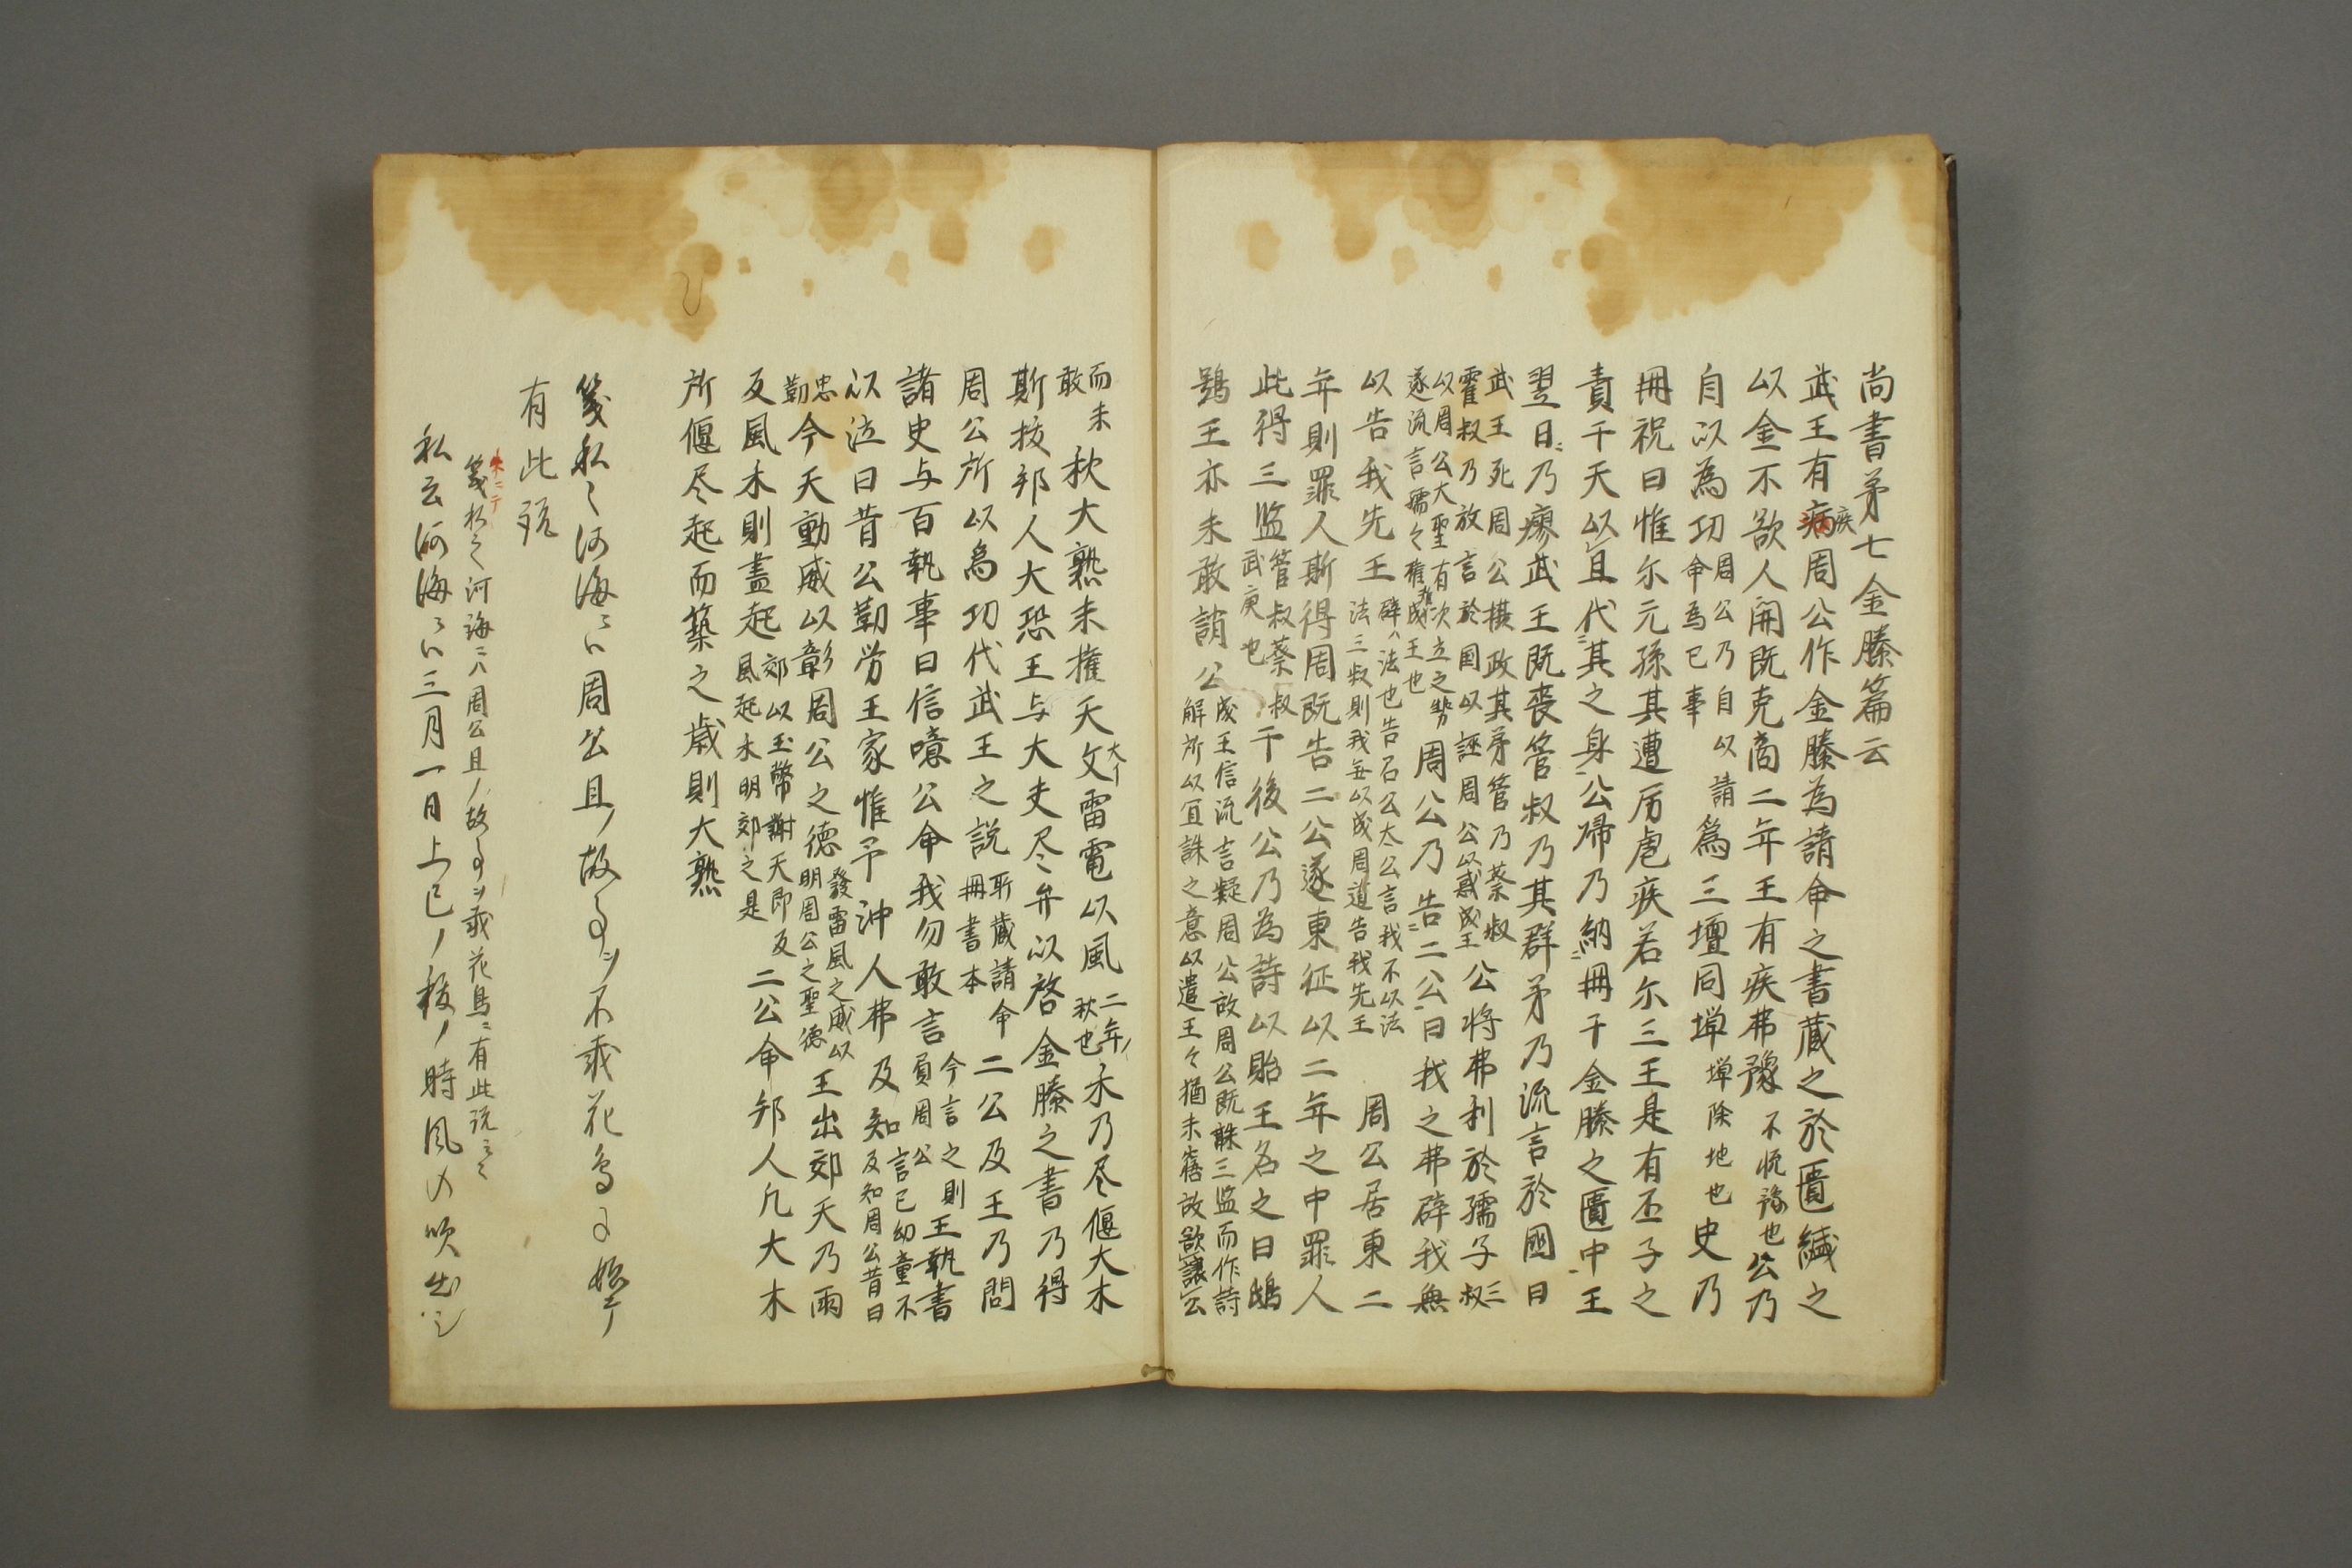 尚書第七金縢篇云
武王有病疾周公作金縢為請命之書蔵之於匱緘之
以金不欲人開既克商二年王有疾弗豫不悦豫也公乃
自以為功周公乃自以請命為已事為三壇同墠墠除地也史乃
冊祝曰惟尓元孫其遭厉虐疾若尓三王是有丕子之
責于天以旦代其之身公帰乃納冊于金縢之匱中王
翌日乃瘳武王既喪管叔乃其群弟乃流言於國曰
武王死周公摂政其弟管乃蔡叔霍叔乃放言於国以誣周公以惑成王公将弗利於孺子三叔
以周公大聖有次立之勢遂流言孺々稚成王也周公乃告二公曰我之弗辟我無
以告我先王辟法也告召公太公言我不以法法三叔則我無以成周道告我先王周公居東二
年則罪人斯得周既告二公遂東征以二年之中罪人
此得三监管叔蔡叔武庚也于後公乃為詩以貽王名之曰鴟
鴞王亦未敢誚公成王信流言疑周公故周公既誅三监而作詩解所以宜誅之意以遺王々猶未寤故欲讓公
而未敢秋大熟未獲天大雷電以風二年ノ秋也禾乃尽偃大木
斯抜邦人大恐王与大夫尽弁以啓金縢之書乃得
周公所以為功代武王之説所蔵請命冊書本二公及王乃問
諸史与百執事曰信噫公命我勿敢言今言之則負周公王執書
以泣曰昔公勤労王家惟予沖人弗及知言已幼童不及知周公昔日
忠勤今天動威以彰周公之徳發雷風之威以明周公之聖徳王出郊天乃雨
反風禾則盡起郊以玉幣謝天即反風起木明郊之是二公命邦人凡大木
所偃尽起而築之歳則大熟
箋私之河海ニハ周公旦ノ故事ヲ不載花鳥ニ
有此説
朱ニテ
箋私之河海ニハ周公旦ノ故事ヲ載花鳥ニ有此説云々
私云河海ニハ三月一日上巳ノ祓ノ時風ノ吹出